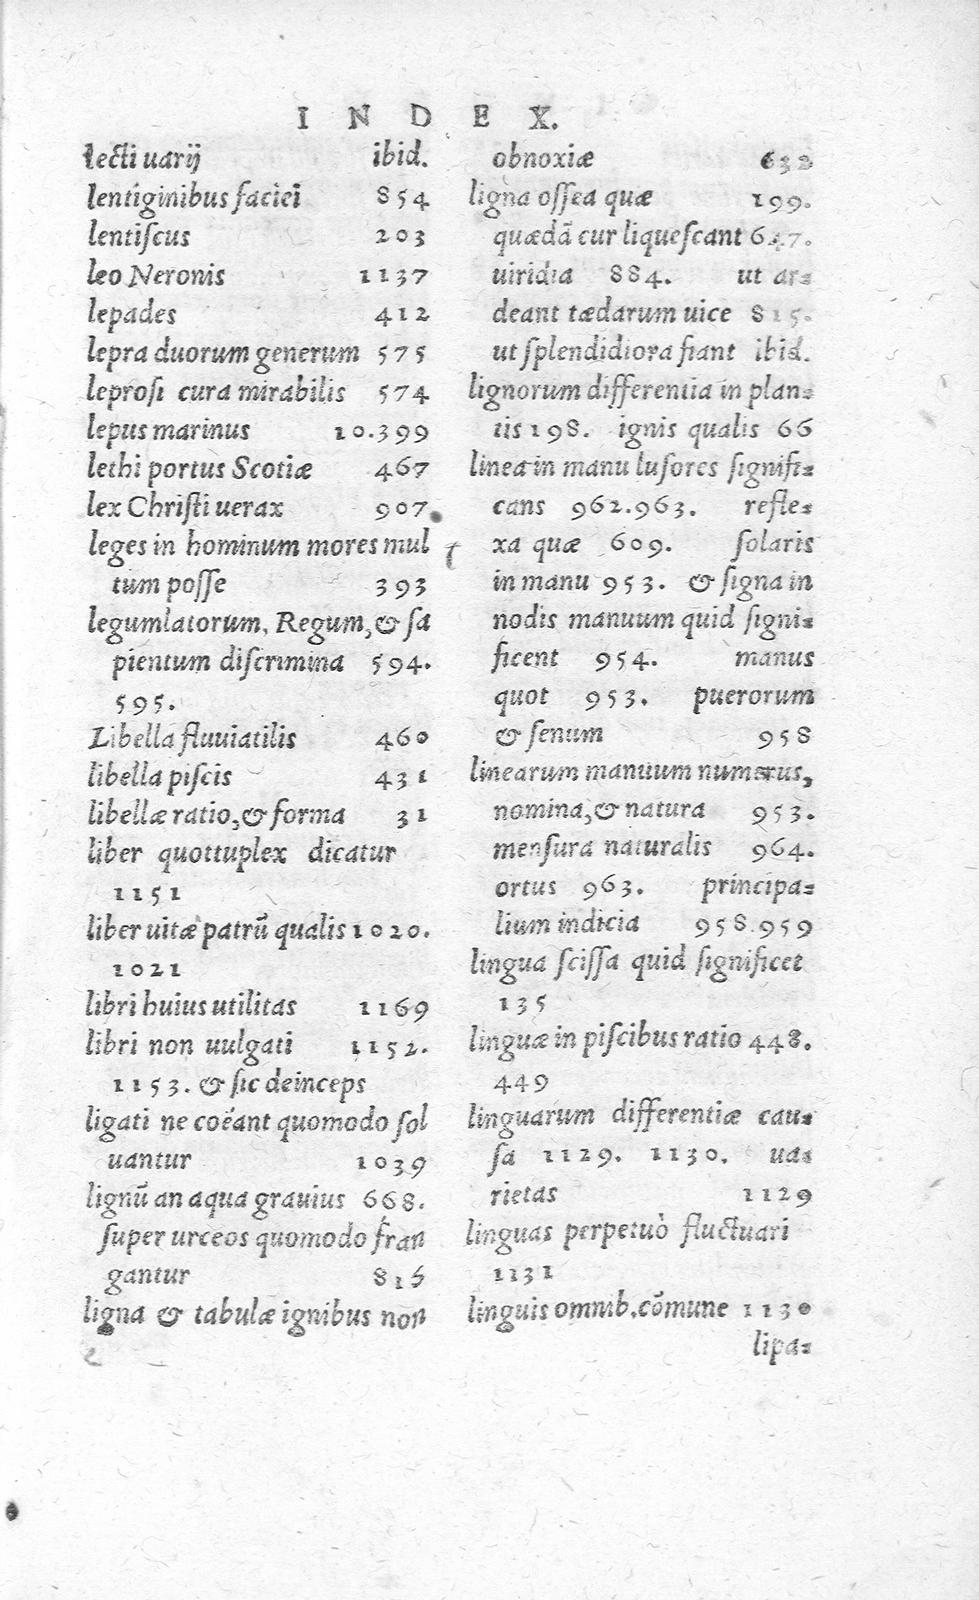 INDEX.
lecti uarij ibid.
lentiginibus faciei 854
lentiſcus 203
leo Neronis 1137
lepades 412
lepra duorum generum 575
leproſi cura mirabilis 574
lepus marinus 10.399
lethi portus Scotiæ 467
lex Chriſti uerax 907
leges in hominum mores mul
tum poſſe 393
legumlatorum, Regum, & ſa
pientum diſcrimina 594.
595.
Libella fluuiatilis 460
libella piſcis 431
libellæ ratio, & forma 31
liber quottuplex dicatur
1151
liber uitæ patrũ qualis 1020.
1021
libri huius utilitas 1169
libri non uulgati 1152.
1153. & ſic deinceps
ligati ne coëant quomodo ſol
uantur 1039
lignũ an aqua grauius 668.
ſuper urceos quomodo fran
gantur 815
ligna & tabulæ ignibus non
obnoxiæ 632
ligna oſſea quæ 199.
quædã cur liqueſcant 647.
uiridia 884. ut ar⸗
deant tædarum uice 815.
ut ſplendidiora fiant ibid.
lignorum differentia in plan⸗
tis 198. ignis qualis 66
linea in manu luſores ſignifi⸗
cans 962.963. refle⸗
xa quæ 609. ſolaris
in manu 953. & ſigna in
nodis manuum quid ſigni⸗
ficent 954. manus
quot 953. puerorum
& ſenum 958
linearum manuum numerus,
nomina, & natura 953.
menſura naturalis 964.
ortus 963. principa⸗
lium indicia 958.959
lingua ſciſſa quid ſignificet
135
linguæ in piſcibus ratio 448.
449
linguarum differentiæ cau⸗
ſa 1129. 1130. ua⸗
rietas 1129
linguas perpetuò fluctuari
1131
linguis omnib. cõmune 1130
lipa⸗